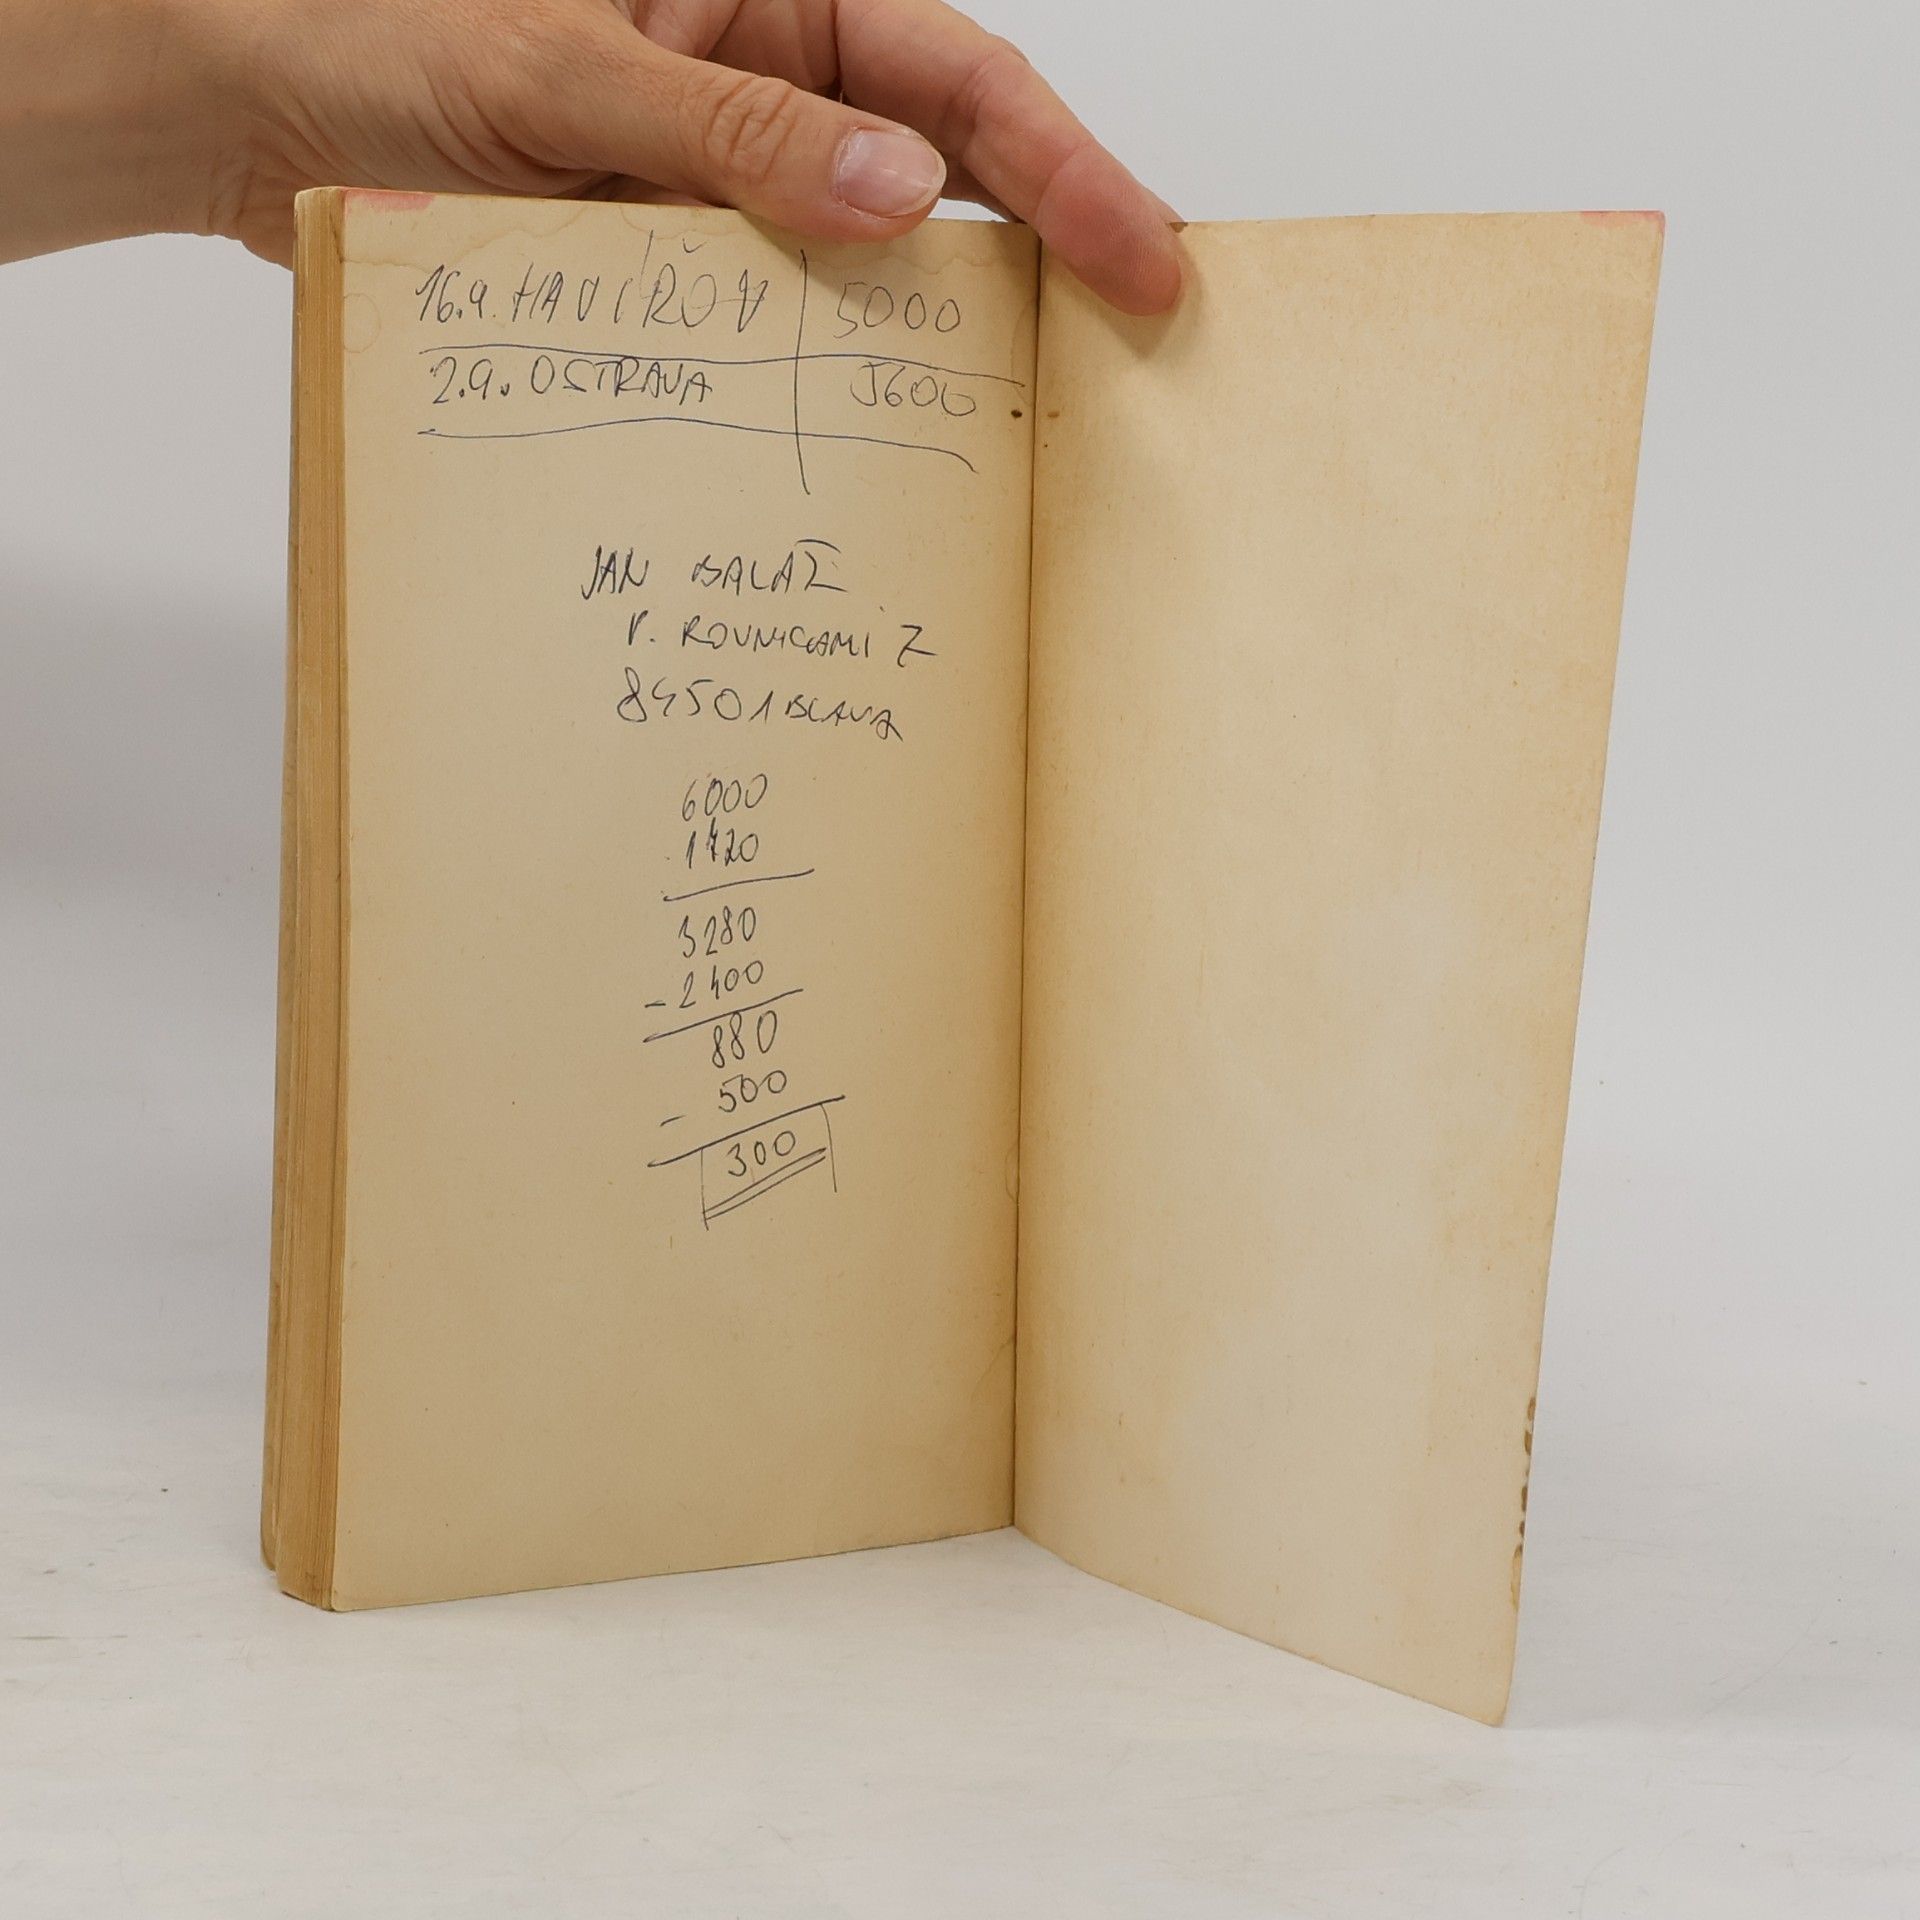 16.9. HAVÍŘOV 5000
2.9. OSTRAVA 5600
JAN BALÁŽ
P. ROVNICAMI Z
84501 BLAVA
6000
1720
3280
- 2400
880
- 500
300